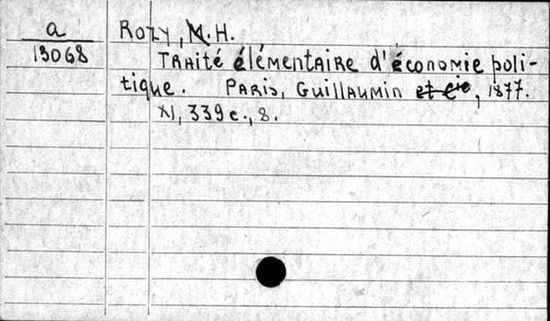 a
13068
Rozy, M. H.
Traité élémentaire d'économie poli-
tique. Paris, Guillaumin et Cie, 1877.
XI, 339 c., 8.